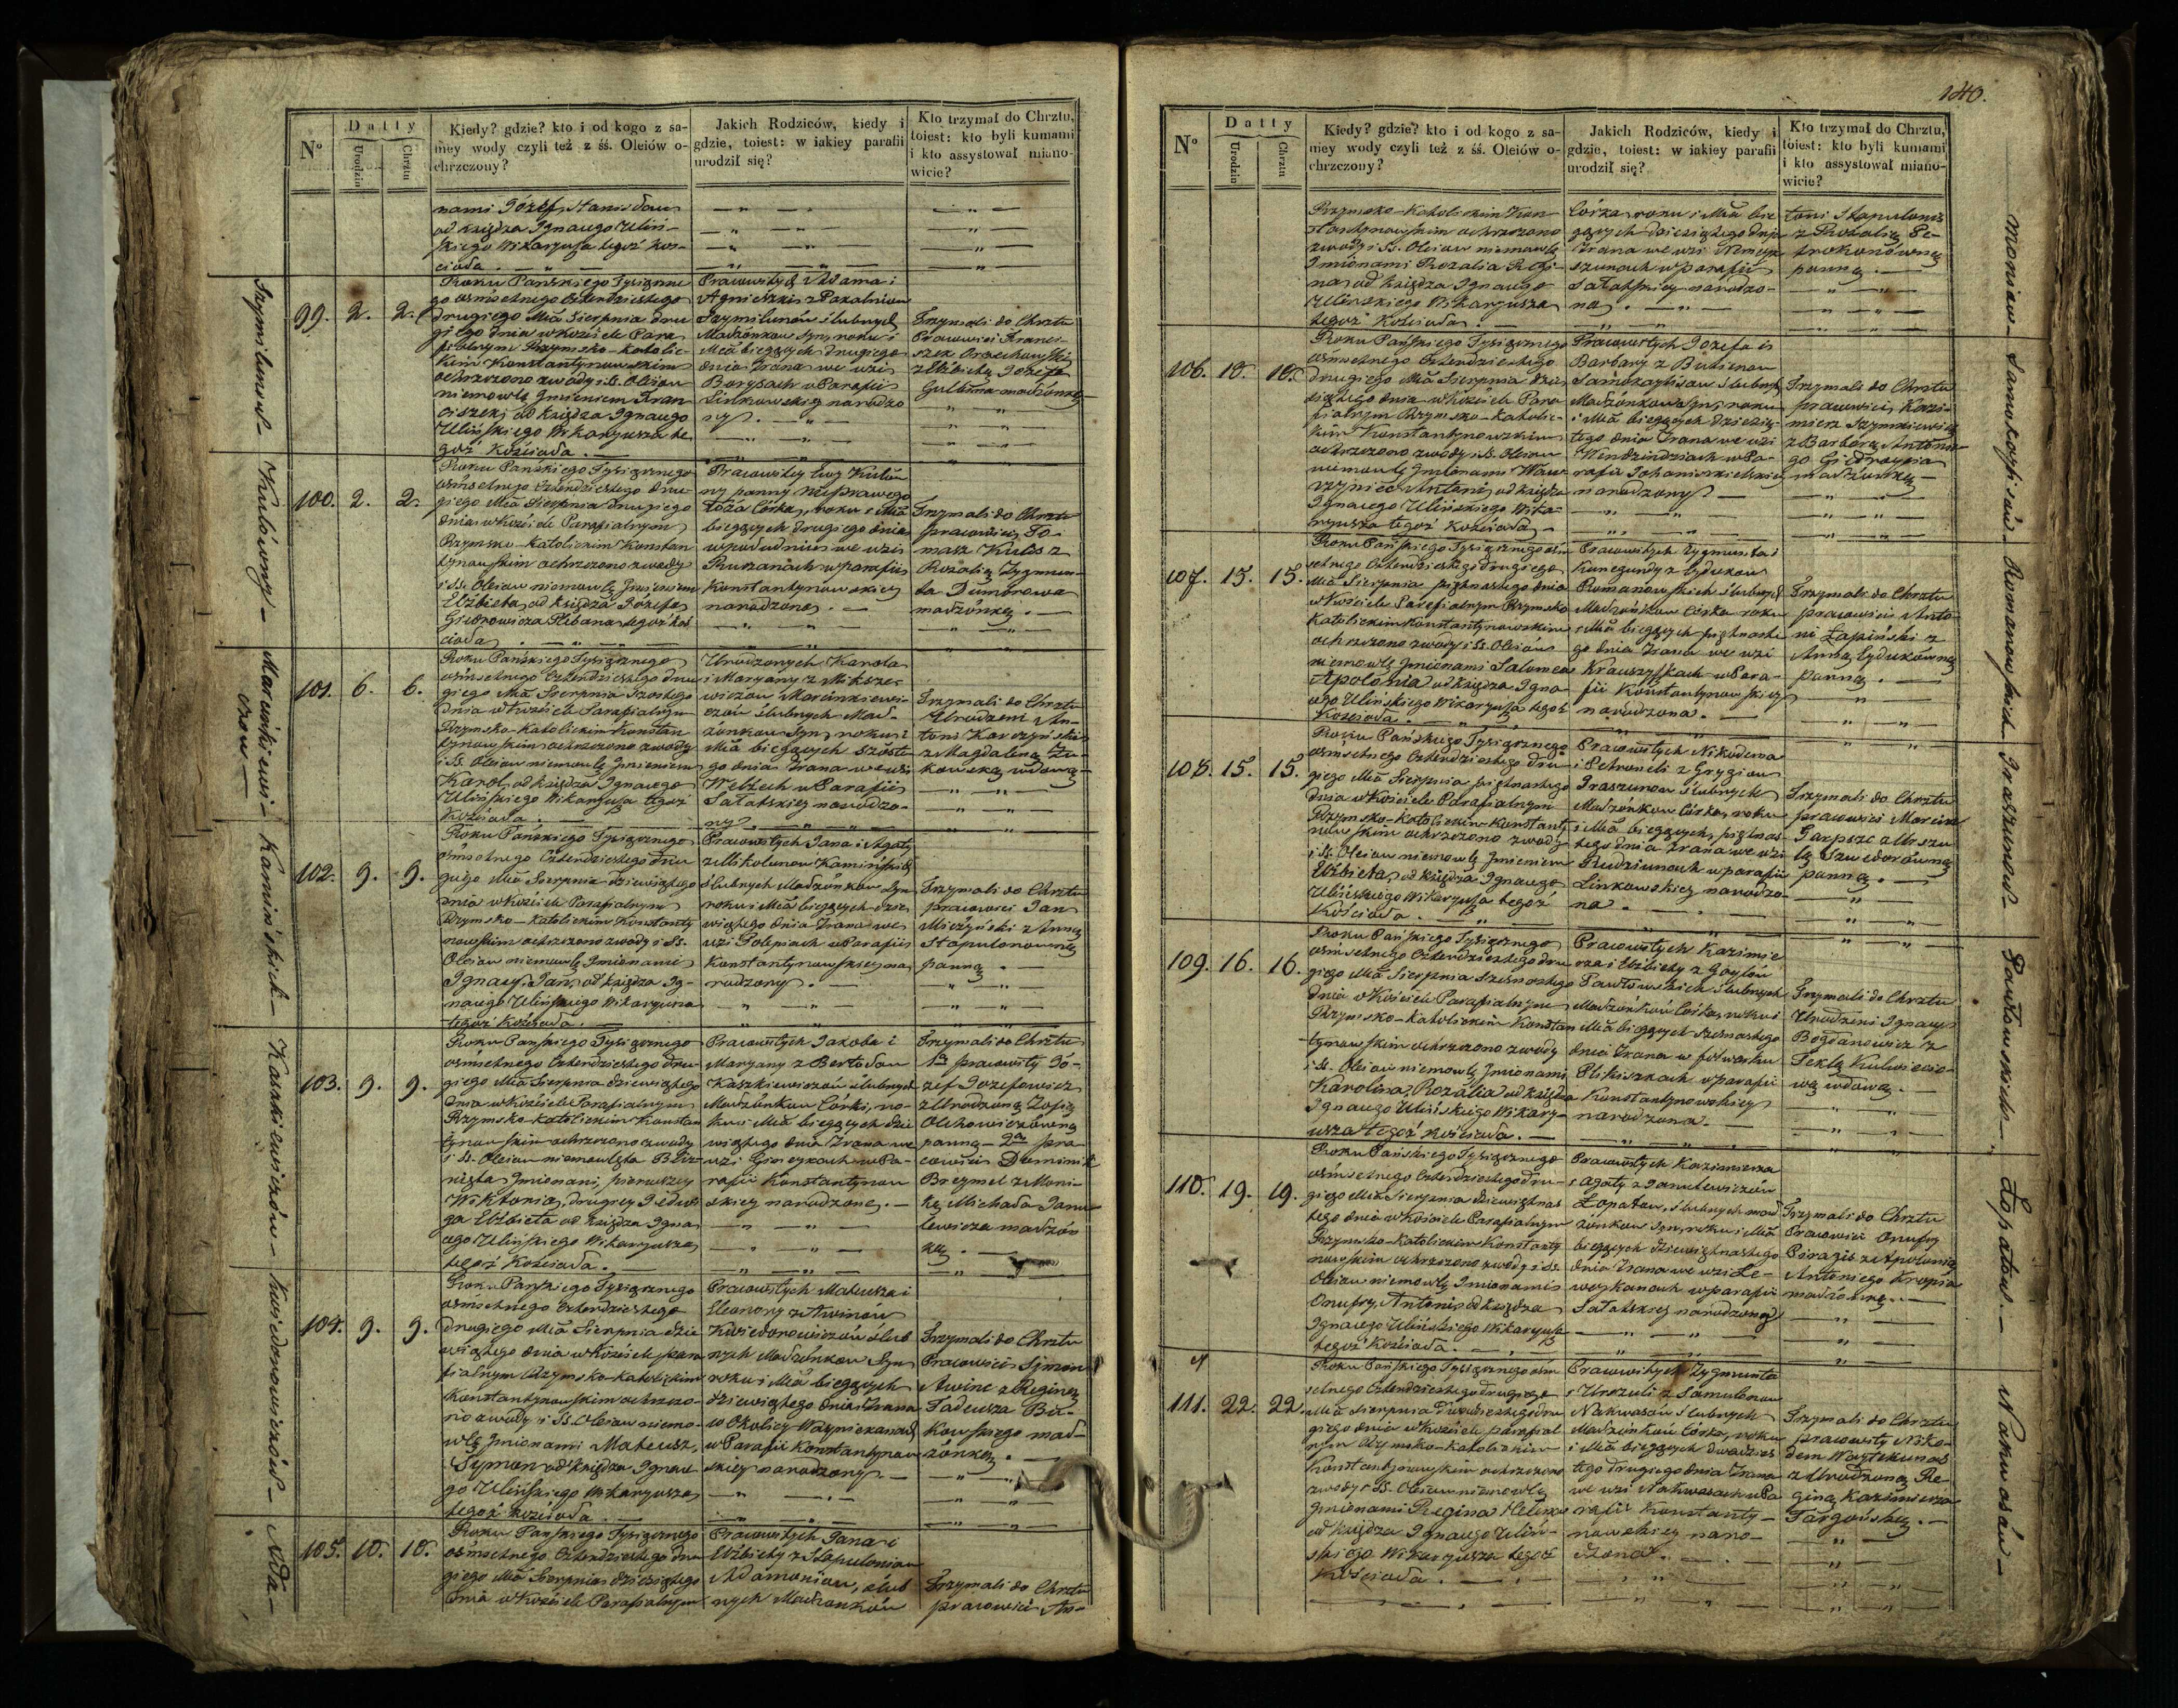 N°
Datty
Urodzin
Chrztu
Kiedy? gdzie? kto i od kogo z sa-
mey wody czyli też z śś. Oleiów o-
chrzczony?
Jakich Rodziców, kiedy i
gdzie, toiest: w iakiey parafii
urodził się?
Kto trzymał do Chrztu,
toiest: kto byli kumami
i kto assystował miano-
wicie?
nami Józef, Stanisław
od księdza Ignacego Uliń-
skiego Wikaryusza tegoż koś-
cioła.
99. 2. 2.
Roku Pańskiego Tysiączne
go ośmsetnego Czterdziestego
drugiego Mca Sierpnia dru
giego dnia w Kościele Para
fialnym Rzymsko-Katolic-
kim Konstantynowskim
ochrzczono z wody i SS. Oleiow
niemowlę Imieniem Fran
ciszek, od księdza Ignacego
Ulińskiego Wikaryusza te
goż Kościoła.
Pracowitych Adama i
Agnieszki z
Szymilunów ślubnych
Małżonkow Syn, roku i
Mca bieżących drugiego
dnia zrana we wsi
Borysach w Parafii
Linkowskiey narodzo
ny.
Trzymali do Chrztu
Pracowici Franci-
szek Orzechowski
z Elżbietą Jozefa
małżonką
100. 2. 2.
Roku Pańskiego Tysiącznego
ośmsetnego Czterdziestego dru-
giego Mca Sierpnia drugiego
dnia w Kościele Parafialnym
Rzymsko-Katolickim Konstan
tynowskim ochrzczono z wody
i SS. Oleiow niemowlę Imieniem
Elżbieta, od księdza Józefa
Plebana tegoż koś
cioła
Pracowitey Ewy Kulów
ny panny nieprawego
łoża Córka, roku i Mca
bieżących drugiego dnia
w południe we wsi
w parafii
Konstantynowskiey
narodzona.
Trzymali do Chrztu
pracowici To-
masz Kulis z
Rozalią Zygmun-
ta Dumbrowa
małżonką.
101. 6. 6.
Roku Pańskiego Tysiącznego
ośmsetnego Czterdziestego dru
giego Mca Sierpnia szostego
dnia w Kościele Parafialnym
Rzymsko-Katolickim Konstan
tynowskim ochrzczono z wody
i SS. Oleiow niemowlę Imieniem
Karol, od księdza Ignacego
Ulińskiego Wikaryusza tegoż
Kościoła.
Urodzonych Karola
i Maryany z Miksze-
wiczow Marcinkiewi-
czów ślubnych Mał-
żonkow Syn, roku i
Mca bieżących szoste
go dnia zrana we wsi
w Parafii
Sałatskiey narodzo-
ny
Trzymali do Chrztu
Urodzeni An-
toni Karczyński
z Magdaleną
wdową
102. 9. 9.
Roku Pańskiego Tysiącznego
ośmsetnego Czterdziestego dru
giego Mca Sierpnia dziewiątego
dnia w Kościele Parafialnym
Rzymsko-Katolickim Konstanty
nowskim ochrzczono z wody i SS.
Oleiow niemowlę Imionami
Ignacy, Jan, od księdza Ig-
nacego Ulińskiego Wikaryusza
tegoż Kościoła.
Pracowitych Jana i Agaty
z Mikolunow Kamińskich
ślubnych Małżonkow Syn
roku i Mca bieżących dzie
wiątego dnia zrana we
wsi Golepiach w Parafii
Konstantynowskiey na
rodzony.
Trzymali do Chrztu
pracowici Jan
Miczyński z Anną
Stapulonowną
panną.
103. 9. 9.
Roku Pańskiego Tysiącznego
ośmsetnego Czterdziestego dru-
giego Mca Sierpnia dziewiątego
dnia w Kościele Parafialnym
Rzymsko-Katolickim Konstan
tynowskim ochrzczono z wody
i SS. Oleiow niemowlęta Bliz-
nięta Imionami, pierwszey
Wiktoria, drugiey
Elżbieta od księdza Igna
cego Ulińskiego Wikaryusza
tegoż Kościoła.
Pracowitych Jakoba i
Maryany z Bertoldow
Kaszkiewiczów ślubnych
Małżonkow Córki, ro-
ku i Mca bieżących dzie
wiątego dnia zrana we
wsi w Pa-
rafii Konstantynow
skiey narodzone.
Trzymali do Chrztu
1ą pracowity Jó-
zef Jozefowicz
z Urodzoną Zofią
Olechowiczówną
panną - 2ą pra-
cowici Dominik
Breymel z Moni-
ką Michała Janu-
lewicza małżon
ką.
104. 9. 9.
Roku Pańskiego Tysiącznego
ośmsetnego Czterdziestego
drugiego Mca Sierpnia dzie
wiątego dnia w Kościele para
fialnym Rzymsko-Katolickim
Konstantynowskim ochrzczo-
no z wody i SS. Oleiow niemo-
wlę Imionami Mateusz,
Symon od księdza Ignace
go Ulińskiego Wikaryusza
tegoż kościoła
Pracowitych Mateusza i
Eleonory z Awinów
Kwiedorowiczów ślub
nych Małżonkow Syn
roku i Mca bieżących
dziewiątego dnia zrana
w Okolicy
w Parafii Konstantynow
skiey narodzony.
Trzymali do Chrztu
Pracowici Simon
Awinc z Reginą
Tadeusza Bu-
kowskiego mał-
żonką.
105. 10. 10.
Roku Pańskiego Tysiącznego
ośmsetnego Czterdziestego dru
giego Mca Sierpnia dziesiątego
dnia w Kościele Parafialnym
Pracowitych Jana i
Elżbiety z Stapulonow
Adamoniow, ślub
nych Małżonków
Trzymali do Chrztu
pracowici An-
Szymilunow - Kulówny - Marcinkiewi- Kamińskich - Kaszkiewiczów - Kwiedorowiczów - Ada-
czow
140.
N°
Datty
Urodzin
Chrztu
Kiedy? gdzie? kto i od kogo z sa-
mey wody czyli też z śś. Oleiów o-
chrzczony?
Jakich Rodziców, kiedy i
gdzie, toiest: w iakiey parafii
urodził się?
Kto trzymał do Chrztu,
toiest: kto byli kumami
i kto assystował miano-
wicie?
Rzymsko-Katolickim Kon-
stantynowskim ochrzczono
z wody i SS. Oleiow niemowlę
Imionami Rozalia Regi-
na, od księdza Ignacego
Ulińskiego Wikaryusza
tegoż Kościoła.
Córka, roku i Mca bie
żących dziesiątego dnia
zrana we wsi
w parafii
Sałatskiey narodzo-
na.
toni Stapulonis
z Rozalią Pe-
trokonówną
panną.
106. 10. 10.
Roku Pańskiego Tysiącznego
ośmsetnego Czterdziestego
drugiego Mca Sierpnia dzie
siątego dnia w Kościele Para
fialnym Rzymsko-Katolic-
kim Konstantynowskim
ochrzczono z wody i SS. Oleiow
niemowlę Imionami Waw-
rzyniec Antoni, od księdza
Ignacego Ulińskiego Wika-
ryusza tegoż Kościoła
Pracowitych Jozefa i
Barbary z
ślubnych
Małżonkow Syn, roku
i Mca bieżących dziesią-
tego dnia zrana we wsi
w Pa-
rafii Johaniszkielskiey
narodzony
Trzymali do Chrztu
pracowici Kazi-
mierz Szymkiewicz
z Barbarą Antonie-
go
małżonką
107. 15. 15.
Roku Pańskiego Tysiącznego ośm
setnego Czterdziestego drugiego
Mca Sierpnia piętnastego dnia
w Kościele Parafialnym Rzymsko
Katolickim Konstantynowskim
ochrzczono z wody i SS. Oleiow
niemowlę Imionami Salomea
Apolonia od księdza Igna
cego Ulińskiego Wikaryusza tegoż
Kościoła.
Pracowitych Zygmunta i
Kunegundy z Eydukow
Rumanowskich ślubnych
Małżonkow Córka roku
i Mca bieżących piętnaste
go dnia zrana we wsi
w Para-
fii Konstantynowskiey
narodzona.
Trzymali do Chrztu
pracowici Anto-
ni Łapiński z
Anną Eydukówną
panną.
108. 15. 15.
Roku Pańskiego Tysiącznego
ośmsetnego Czterdziestego dru
giego Mca Sierpnia piętnastego
dnia w Kościele Parafialnym
Rzymsko-Katolickim Konstanty
nowskim ochrzczono z wody
i SS. Oleiow niemowlę Imieniem
Elżbieta, od księdza Ignacego
Ulińskiego Wikaryusza tegoż
Kościoła.
Pracowitych Nikodema
i Petroneli z Grygiow
Traszunow ślubnych
Małżonkow Córka, roku
i Mca bieżących, piętnas
tego dnia zrana we wsi
Rudziunach w parafii
Linkowskiey narodzo-
na.
Trzymali do Chrztu
pracowici Marcin
z Urszu
lą Szwedorówną
panną.
109. 16. 16.
Roku Pańskiego Tysiącznego
ośmsetnego Czterdziestego dru
giego Mca Sierpnia szesnastego
dnia w Kościele Parafialnym
Rzymsko-Katolickim Konstan
tynowskim ochrzczono z wody
i SS. Oleiow niemowlę Imionami
Karolina, Rozalia od księdza
Ignacego Ulińskiego Wikary-
usza tegoż kościoła.
Pracowitych Kazimie
rza i Elżbiety z Gaylów
Pawłowskich ślubnych
Małżonkow Córka, roku i
Mca bieżących szesnastego
dnia zrana w folwarku
w parafii
Konstantynowskiey
narodzona.
Trzymali do Chrztu
Urodzeni Ignacy
Bogdanowicz z
Teklą Kulwiecio-
wą wdową.
110. 19. 19.
Roku Pańskiego Tysiącznego
ośmsetnego Czterdziestego dru-
giego Mca Sierpnia dziewiętnas
tego dnia w Kościele Parafialnym
Rzymsko-Katolickim Konstanty
nowskim ochrzczono z wody i SS.
Oleiow niemowlę Imionami
Onufry, Antoni od księdza
Ignacego Ulińskiego Wikaryusza
tegoż Kościoła.
Pracowitych Kazimierza
i Agaty z Janulewiczów
Łopatow, ślubnych mał
żonkow Syn, roku i Mca
bieżących dziewiętnastego
dnia zrana we wsi Le-
w parafii
Sałatskiey narodzony
Trzymali do Chrztu
Pracowici Onufry
z Apolonią
Antoniego
małżonką.
111. 22. 22.
Roku Pańskiego Tysiącznego ośm
setnego Czterdziestego drugiego
Mca Sierpnia dwudziestego dru
giego dnia w Kościele parafial
nym Rzymsko-Katolickim
Konstantynowskim ochrzczono
z wody i SS. Oleiow niemowlę
Imionami Regina Helena
od księdza Ignacego Uliń-
skiego Wikaryusza tegoż
Kościoła.
Pracowitych Zygmunta
i Urszuli z Samulenow
Nakwasów ślubnych
Małżonków Córka, roku
i Mca bieżących dwudzies
tego drugiego dnia zrana
we wsi Nakwasach w Pa
rafii Konstanty-
nowskiey naro-
dzona.
Trzymali do Chrztu
pracowity Niko-
dem Woytekunas
z Urodzoną Re-
giną Kazimierza
Targońską.
moniow - Rumanowskich - Traszunow - Pawłowskich - Łopatow. - Nakwasów -